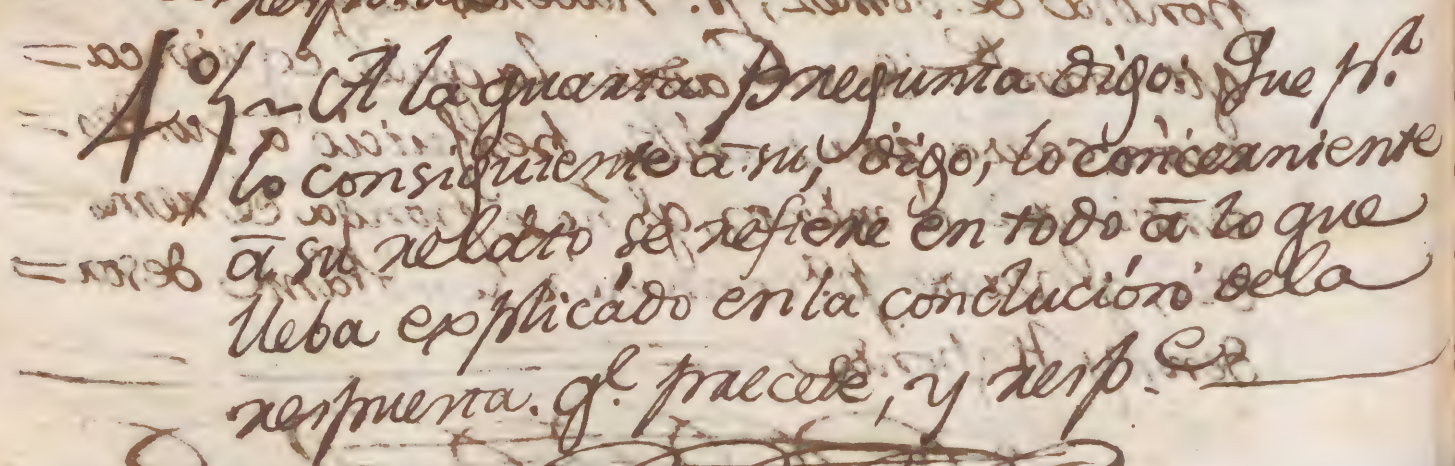 4º/~ A la quarta Pregunta digo: Que pª.
lo consiguiente ā su, digo, lo concerniente
ā su relato se refiere en todo ā lo que
lleba explicádo en la conclución dela
respuesta. qͤ. praecede, y resp.ᵉ